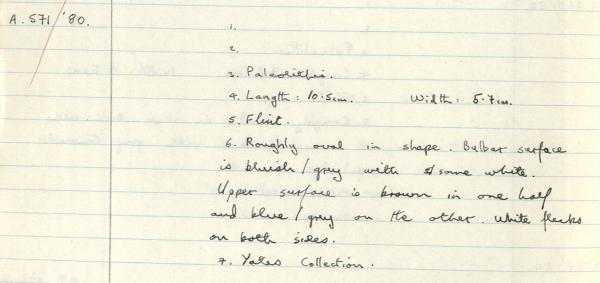 A.571/'80.
1.
2.
3. Palaeolithic.
4. Length: 10.5cm. Width: 5.7cm.
5. Flint.
6. Roughly oval in shape. Bulbar surface
is bluish/grey with some white.
Upper surface is brown in one half
and blue/grey on the other. White flecks
on both sides.
7. Yates Collection.